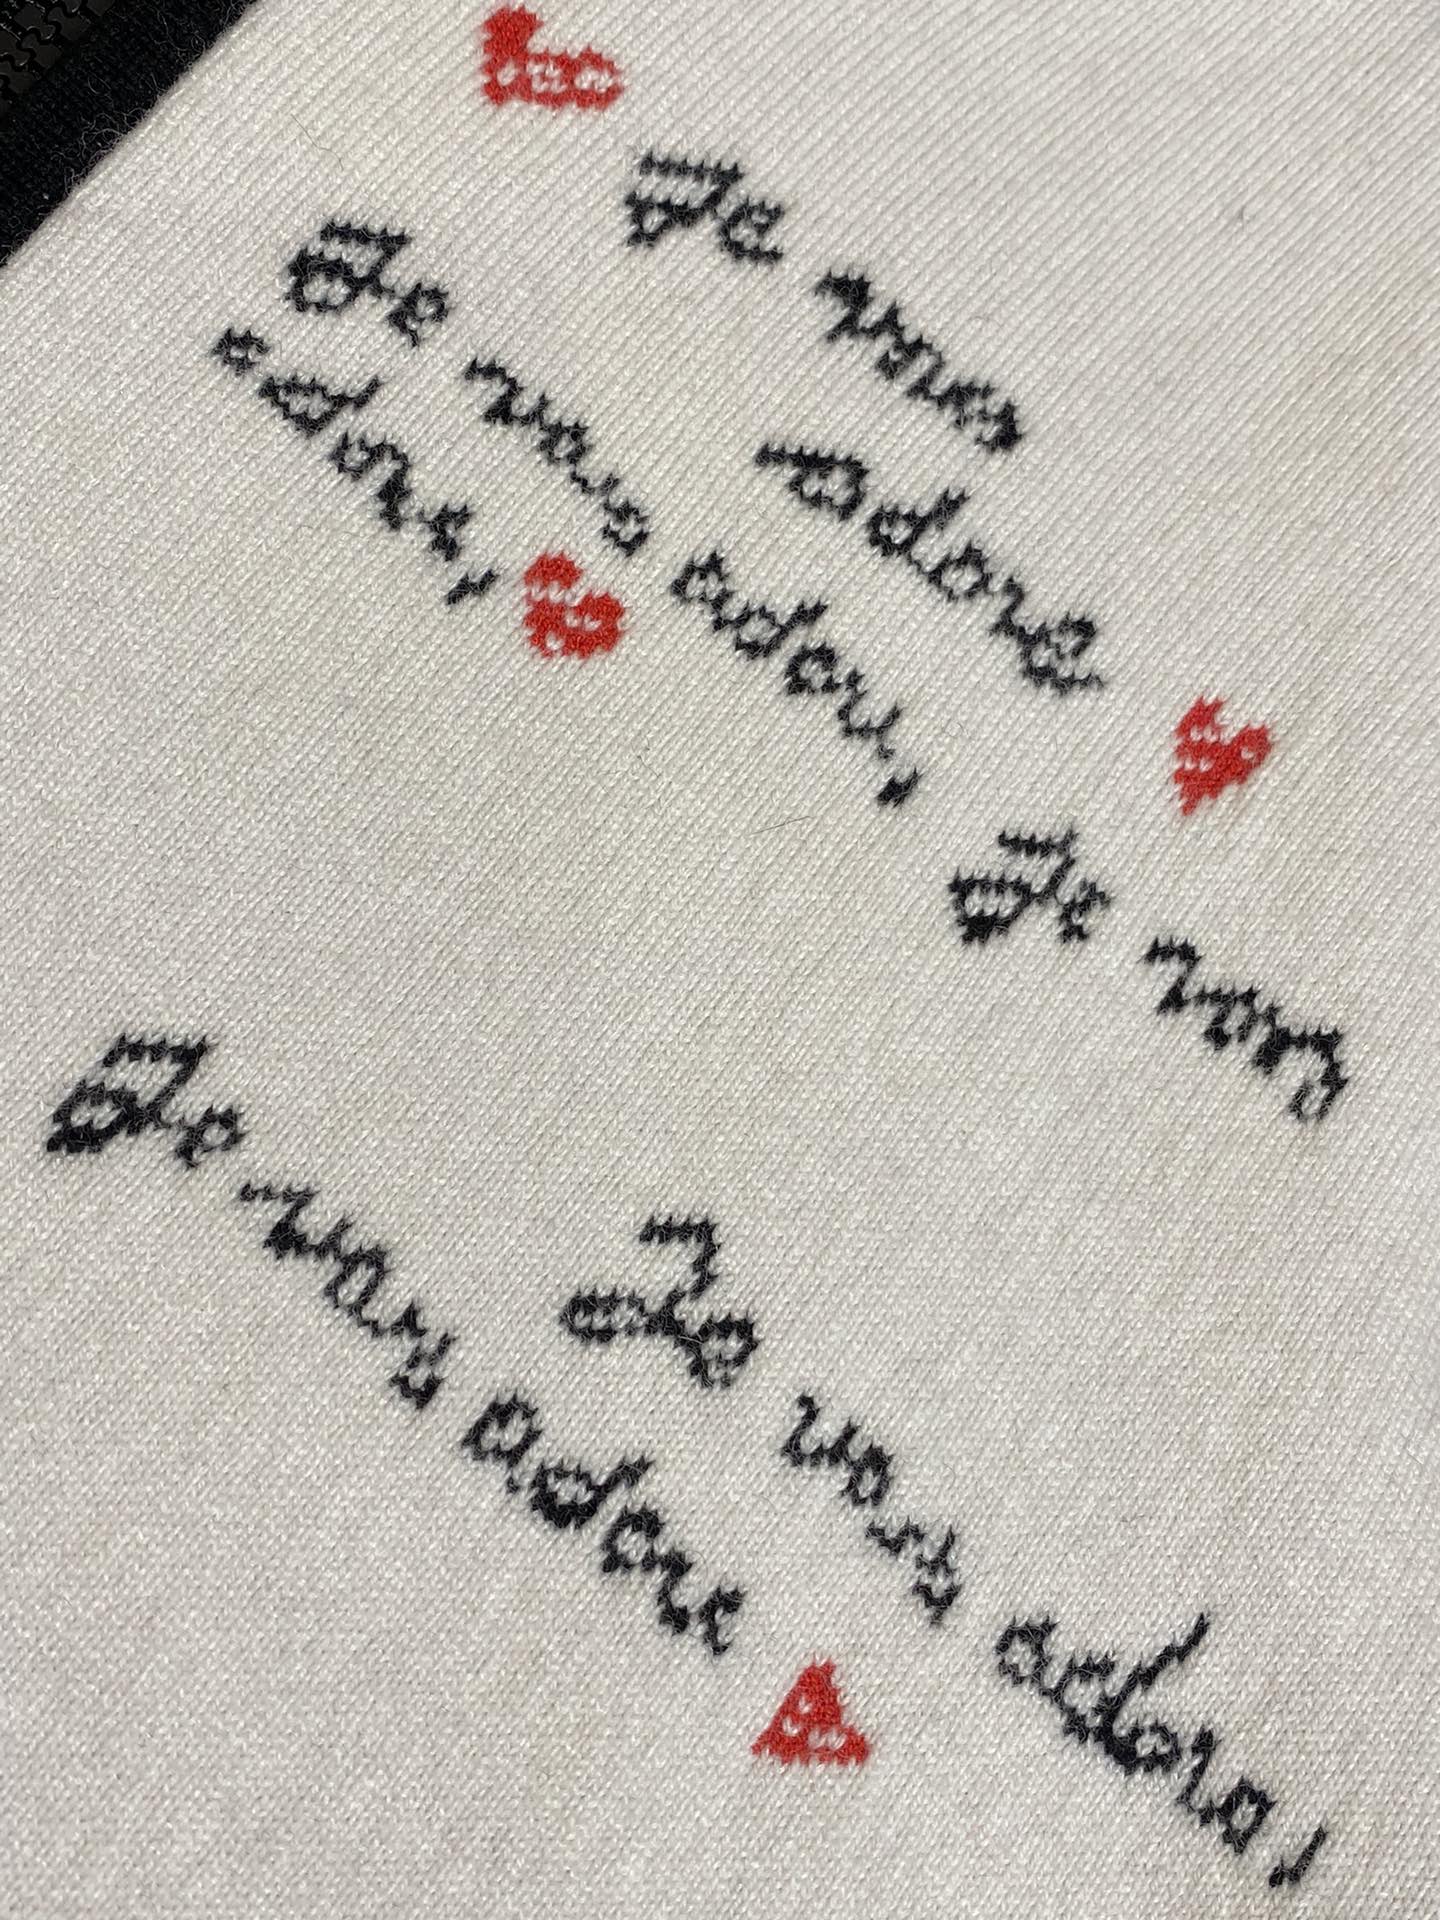 Je vous
adore
Je vous adore,
adore,
Je vous
Je vous adore
Je vous adore,